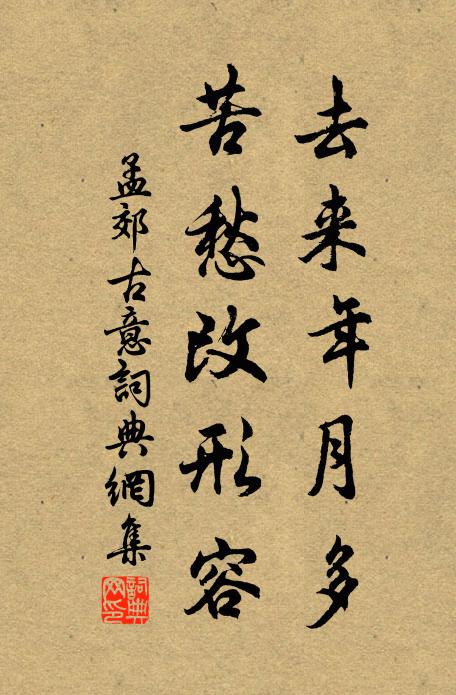 去来年月多
苦愁改形容
孟郊古意詞典網集
詞典网印